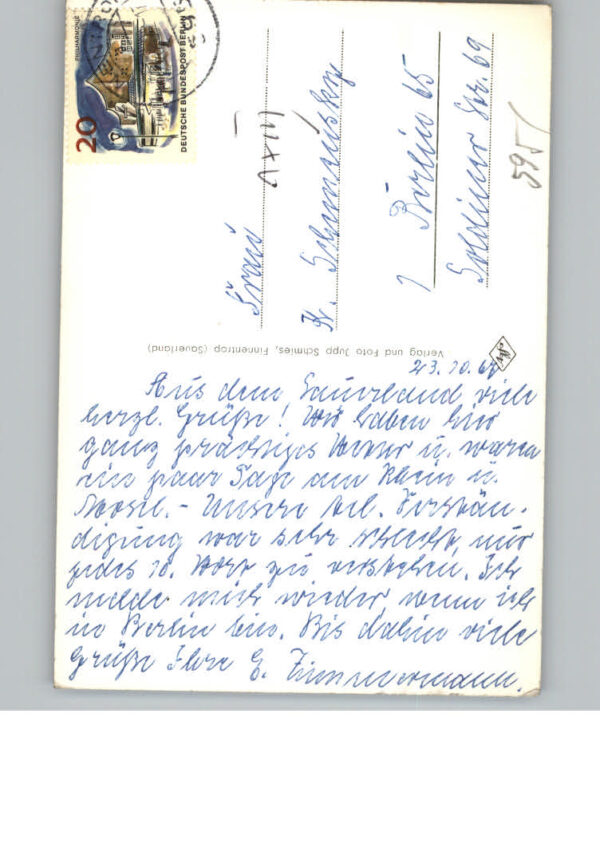 PHILHARMONIE
20
DEUTSCHE BUNDESPOST BERLIN
Frau
K. Schimansky
1 Berlin 65
Soldiner Str. 69
595/
Verlag und Foto Jupp Schmies, Finnentrop (Sauerland)
23.10.
Aus dem Sauerland viele
herzl. Grüße! Wir haben hier
ganz prächtiges Wetter u. waren
ein paar Tage am Rhein u.
Mosel. - Unsere tel. Verstän-
digung war sehr schlecht, nur
jedes 10. Wort zu verstehen. Ich
melde mich wieder, wenn ich
in Berlin bin. Bis dahin viele
Grüße Ihre E. Zimmermann.